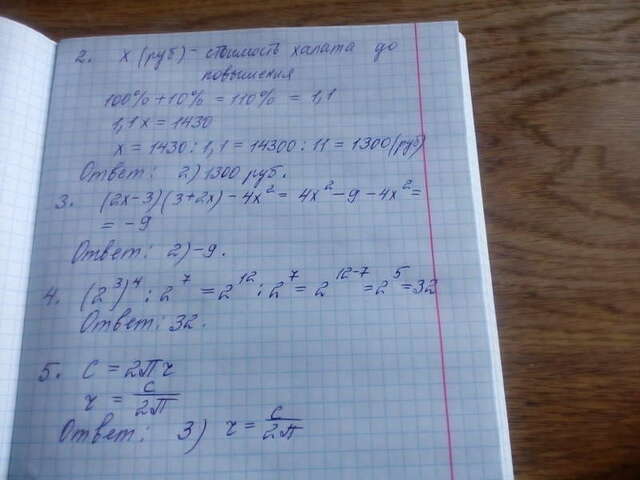 2. x (руб) - стоимость халата до
повышения
100% + 10% = 110% = 1,1
1,1 x = 1430
x = 1430 : 1,1 = 14300 : 11 = 1300 (руб)
Ответ: 2) 1300 руб.
3. (2x-3)(3+2x) - 4x² = 4x² - 9 - 4x² =
= -9
Ответ: 2) -9.
4. (2³)⁴ : 2⁷ = 2¹² : 2⁷ = 2¹²⁻⁷ = 2⁵ = 32
Ответ: 32.
5. C = 2πr
r = C/2π
Ответ: 3) r = C/2π